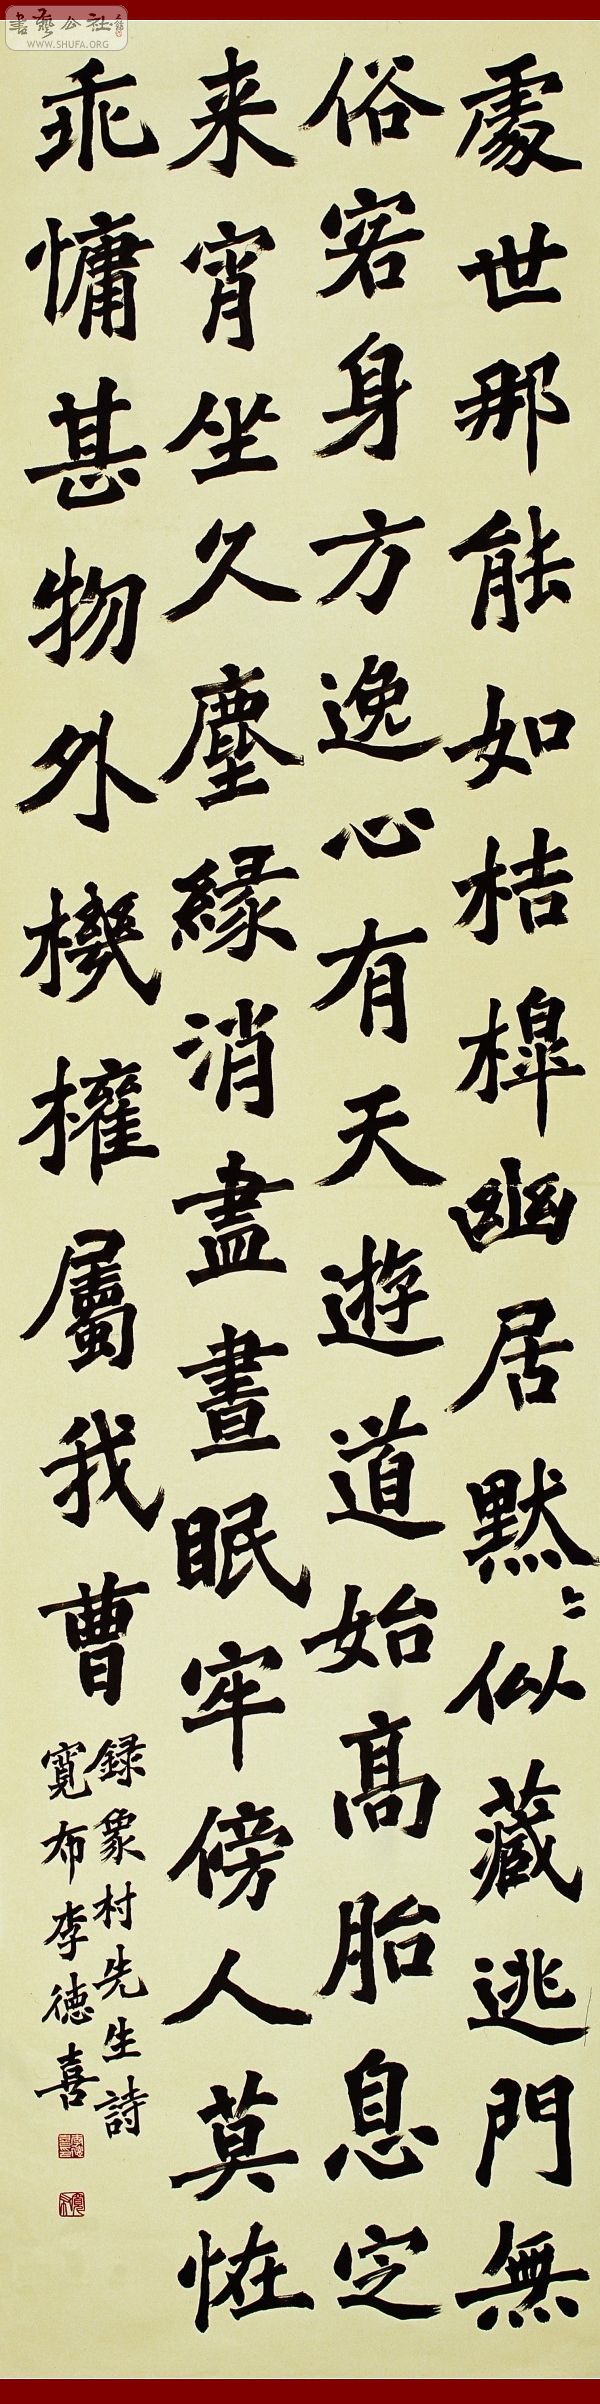 處世那能如桔槔幽居默〻似藏逃門無
俗客身方逸心有天遊道始高胎息定
来宵坐久塵緣消盡晝眠牢傍人莫恠
乖慵甚物外機權屬我曹
録象村先生詩
寬布李德喜
書藝公社
WWW.SHUFA.ORG